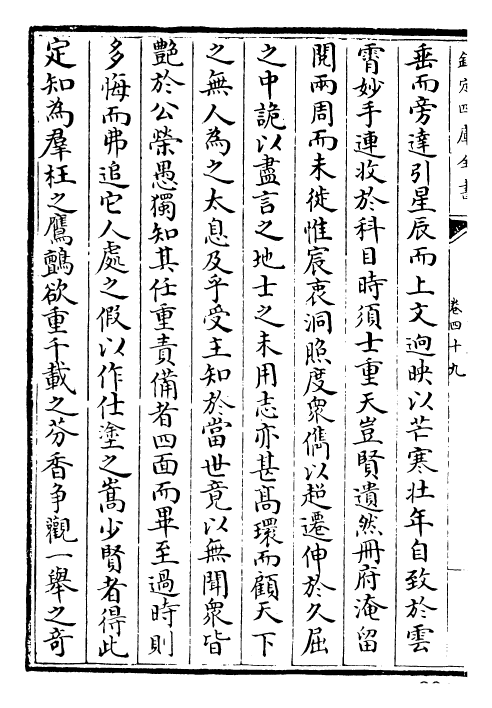 欽定四庫全書
卷四十九
垂而旁達引星辰而上文逈映以芒寒壮年自致於雲
霄妙手連收於科目時須士重天豈賢遺然冊府淹留
閲兩周而未徙惟宸衷洞照度衆儁以超遷伸於久屈
之中詭以盡言之地士之未用志亦甚髙環而顧天下
之無人為之太息及乎受主知於當世竟以無聞衆皆
艷於公榮愚獨知其任重責備者四面而畢至過時則
多悔而弗追它人處之假以作仕塗之嵩少賢者得此
定知為羣枉之鷹鸇欲重千載之芬香争觀一舉之奇